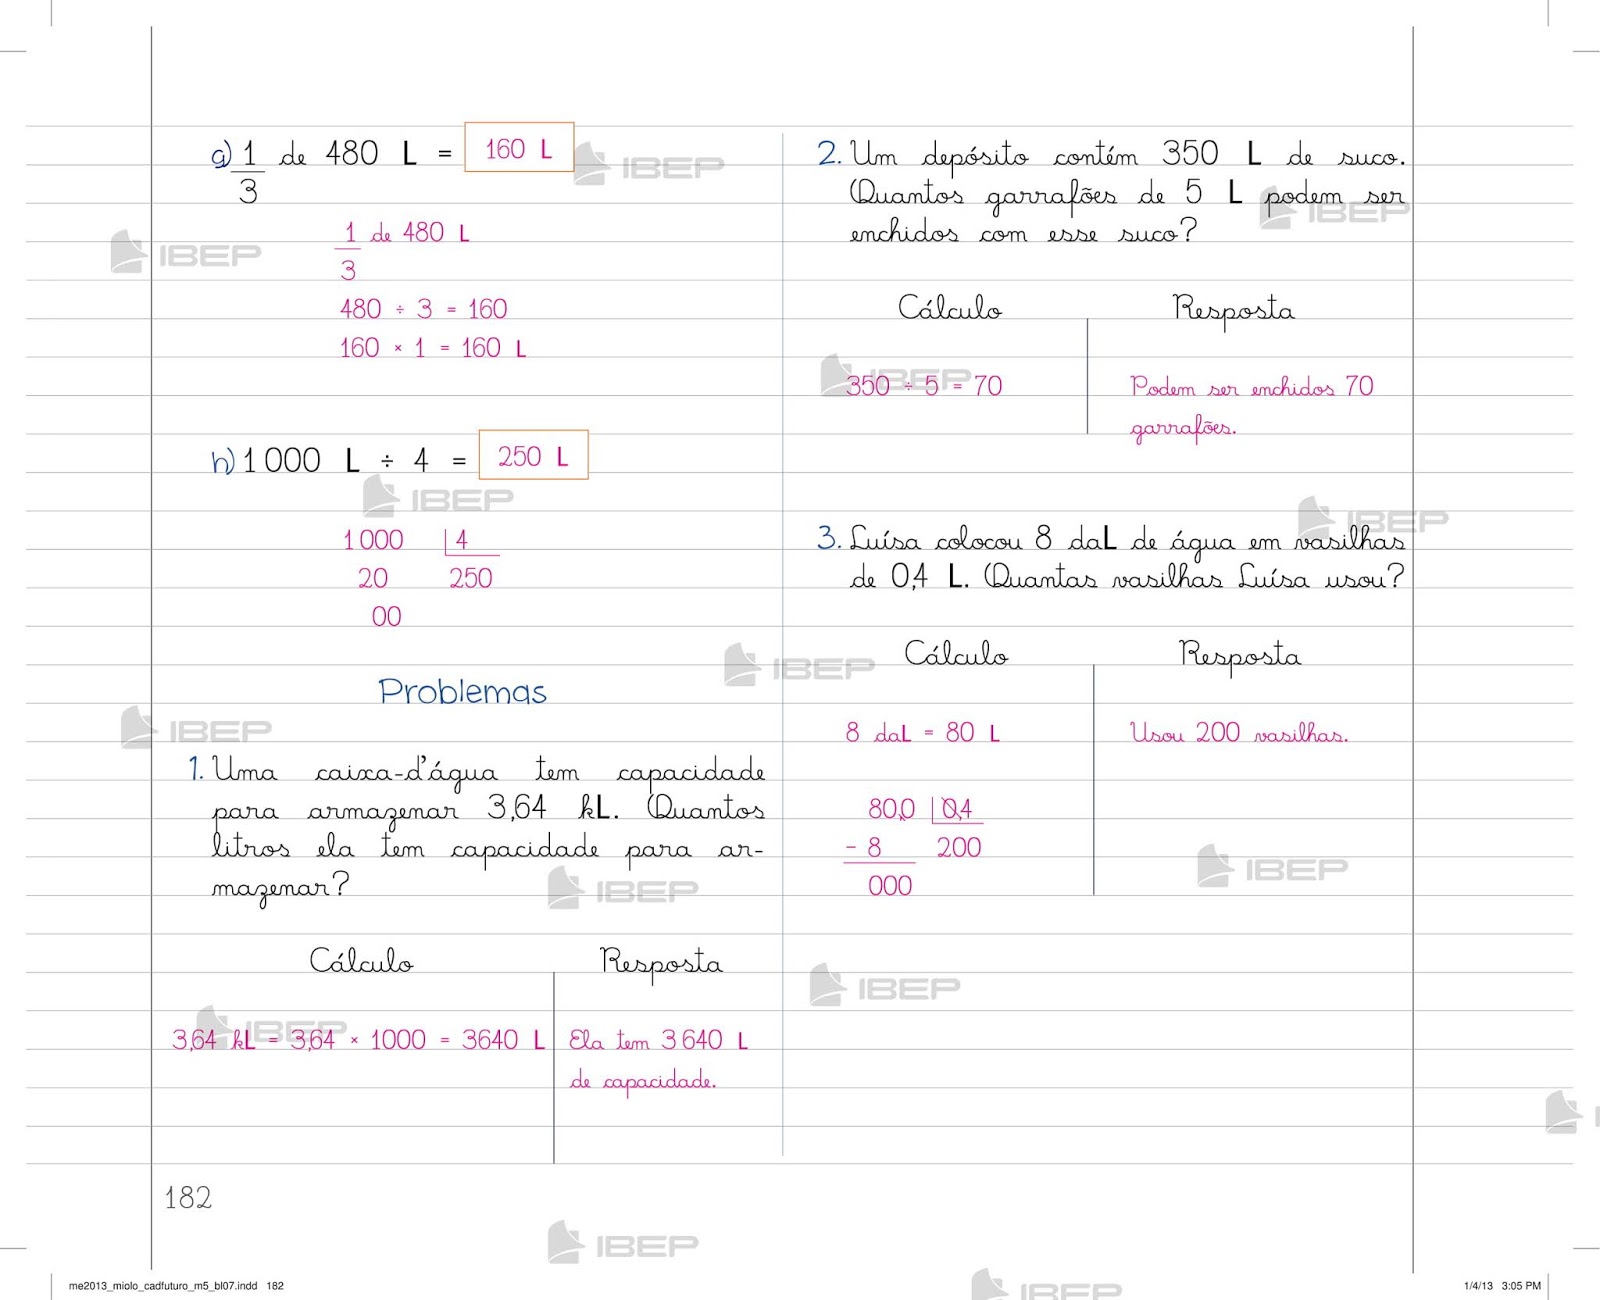 g) 1/3 de 480 L = 160 L
1/3 de 480 L
480 ÷ 3 = 160
160 × 1 = 160 L
h) 1 000 L ÷ 4 = 250 L
1 000 4
20 250
00
Problemas
1. Uma caixa-d'água tem capacidade
para armazenar 3,64 kL. Quantos
litros ela tem capacidade para ar-
mazenar?
Cálculo Resposta
3,64 kL = 3,64 × 1000 = 3640 L Ela tem 3 640 L
de capacidade.
2. Um depósito contém 350 L de suco.
Quantos garrafões de 5 L podem ser
enchidos com esse suco?
Cálculo Resposta
350 ÷ 5 = 70 Podem ser enchidos 70
garrafões.
3. Luísa colocou 8 daL de água em vasilhas
de 0,4 L. Quantas vasilhas Luísa usou?
Cálculo Resposta
8 daL = 80 L Usou 200 vasilhas.
80,0 0,4
- 8 200
000
182
IBEP
IBEP
IBEP
IBEP
IBEP
IBEP
IBEP
IBEP
IBEP
IBEP
IBEP
IBEP
IBEP
IBEP
me2013_miolo_cadfuturo_m5_bl07.indd 182 1/4/13 3:05 PM